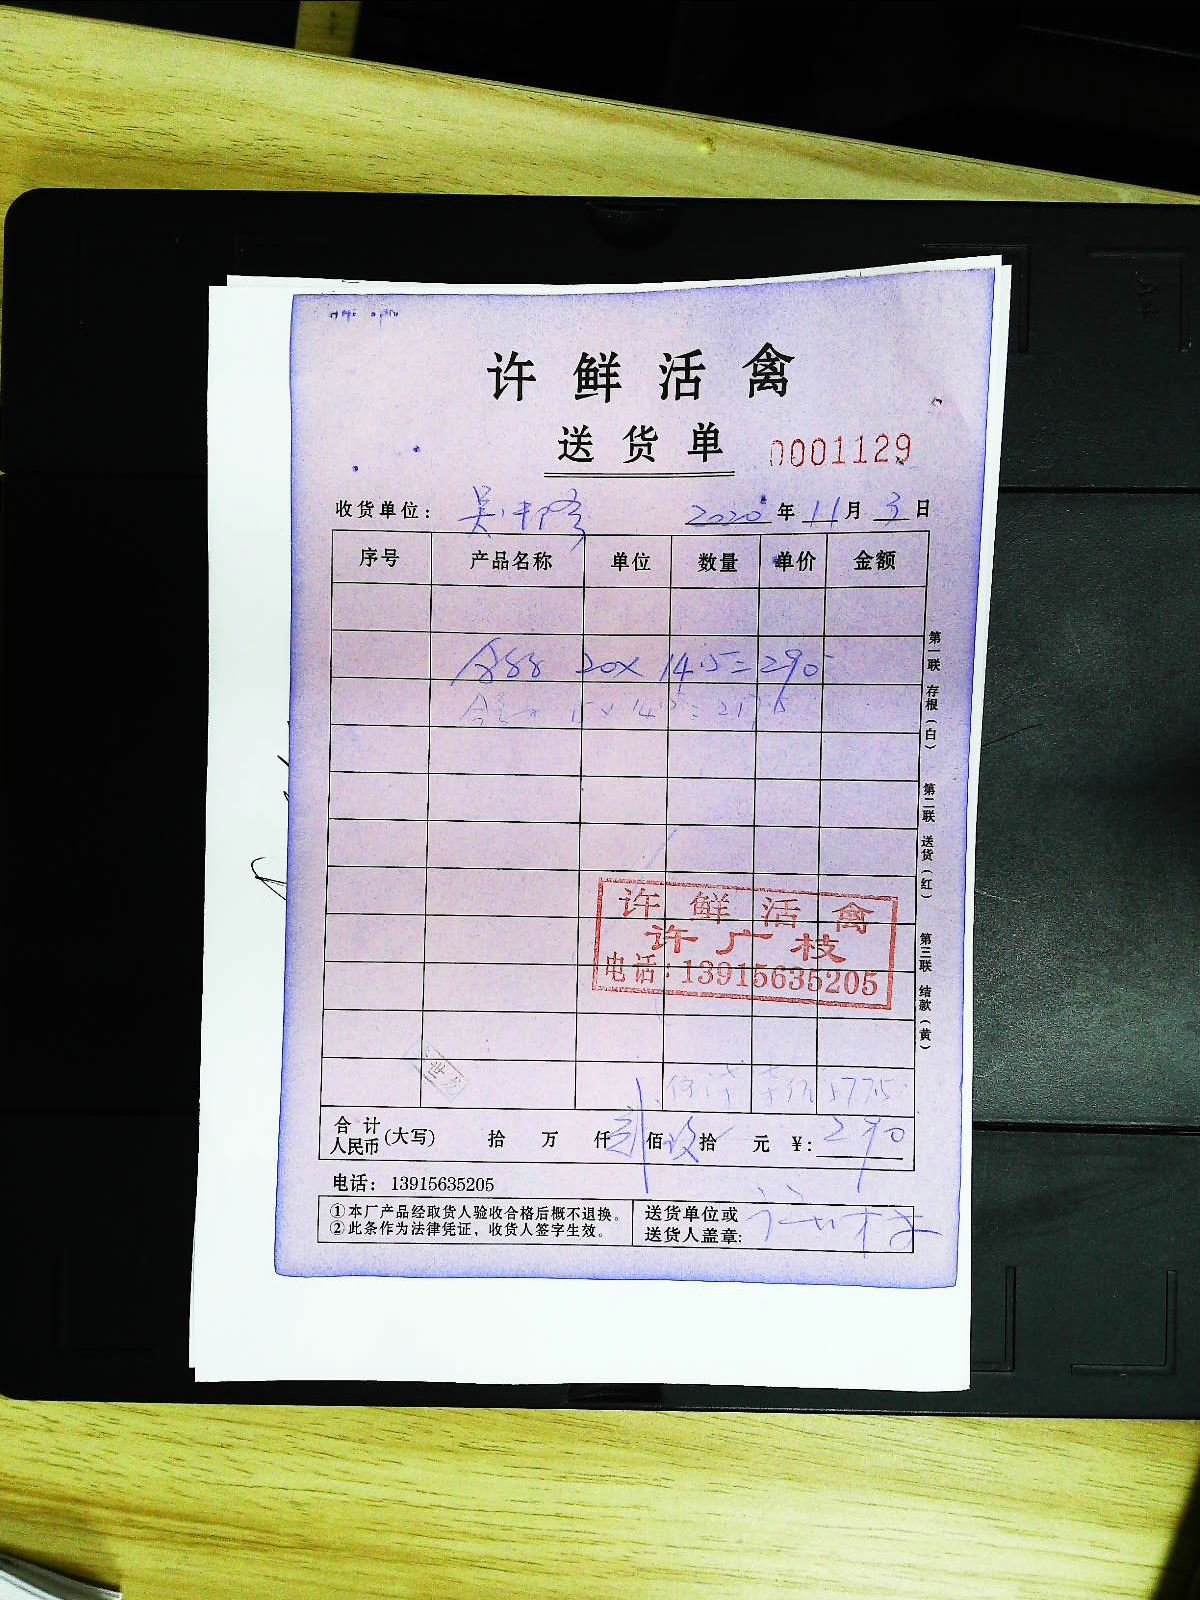 许鲜活禽
送货单 0001129
收货单位： 2020 年 11 月 3 日
序号 产品名称 单位 数量 单价 金额
20× 14.5=290
15× 14.5=217.5
许鲜活禽
许广枝
电话：13915635205
577.5
合计人民币(大写) 拾 万 仟 贰 佰 玖 拾 元 ¥: 290
电话：13915635205
①本厂产品经取货人验收合格后概不退换。
②此条作为法律凭证，收货人签字生效。
送货单位或
送货人盖章:
第一联 存根（白） 第二联 送货（红） 第三联 结款（黄）